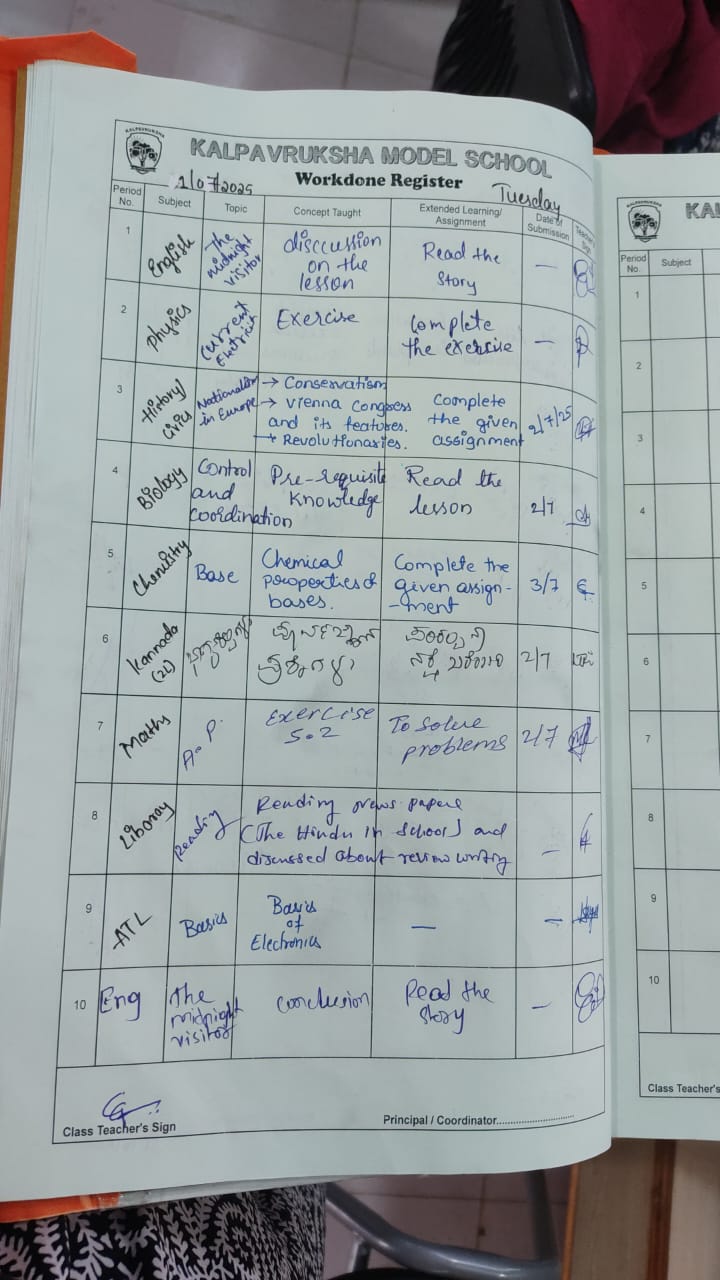 KALPAVRUKSHA
KALPAVRUKSHA MODEL SCHOOL
1/07/2025
Workdone Register
Tuesday
Period No.
Subject
Topic
Concept Taught
Extended Learning/ Assignment
Date of Submission
Teacher's Sign
1
English
The midnight visitor
disccussion
on the
lesson
Read the
Story
—
2
Physics
Current
Exercise
Complete
the exercise
—
3
History/
Civics
Nationalism
in Europe
→ Conservatism
→ Vienna Congress
and its features.
→ Revolutionaries.
Complete
the given
assignment
2/7/25
4
Biology
Control
and
coordination
Pre-requisite
Knowledge
Read the
lesson
2/7
5
Chemistry
Base
Chemical
properties of
bases.
Complete the
given assign-
-ment
3/7
6
Kannada
(2L)
2/7
7
Maths
A.P.
Exercise
5.2
To solve
problems
2/7
8
Library
Reading
Reading news papers
(The Hindu in School) and
discussed about review writing
—
9
ATL
Basics
Basics
of
Electronics
—
—
10
Eng
The
midnight
visitor
conclusion
Read the
Story
—
Class Teacher's Sign
Principal / Coordinator
KALPAVRUKSHA
KA
Period No.
Subject
1
2
3
4
5
6
7
8
9
10
Class Teacher's